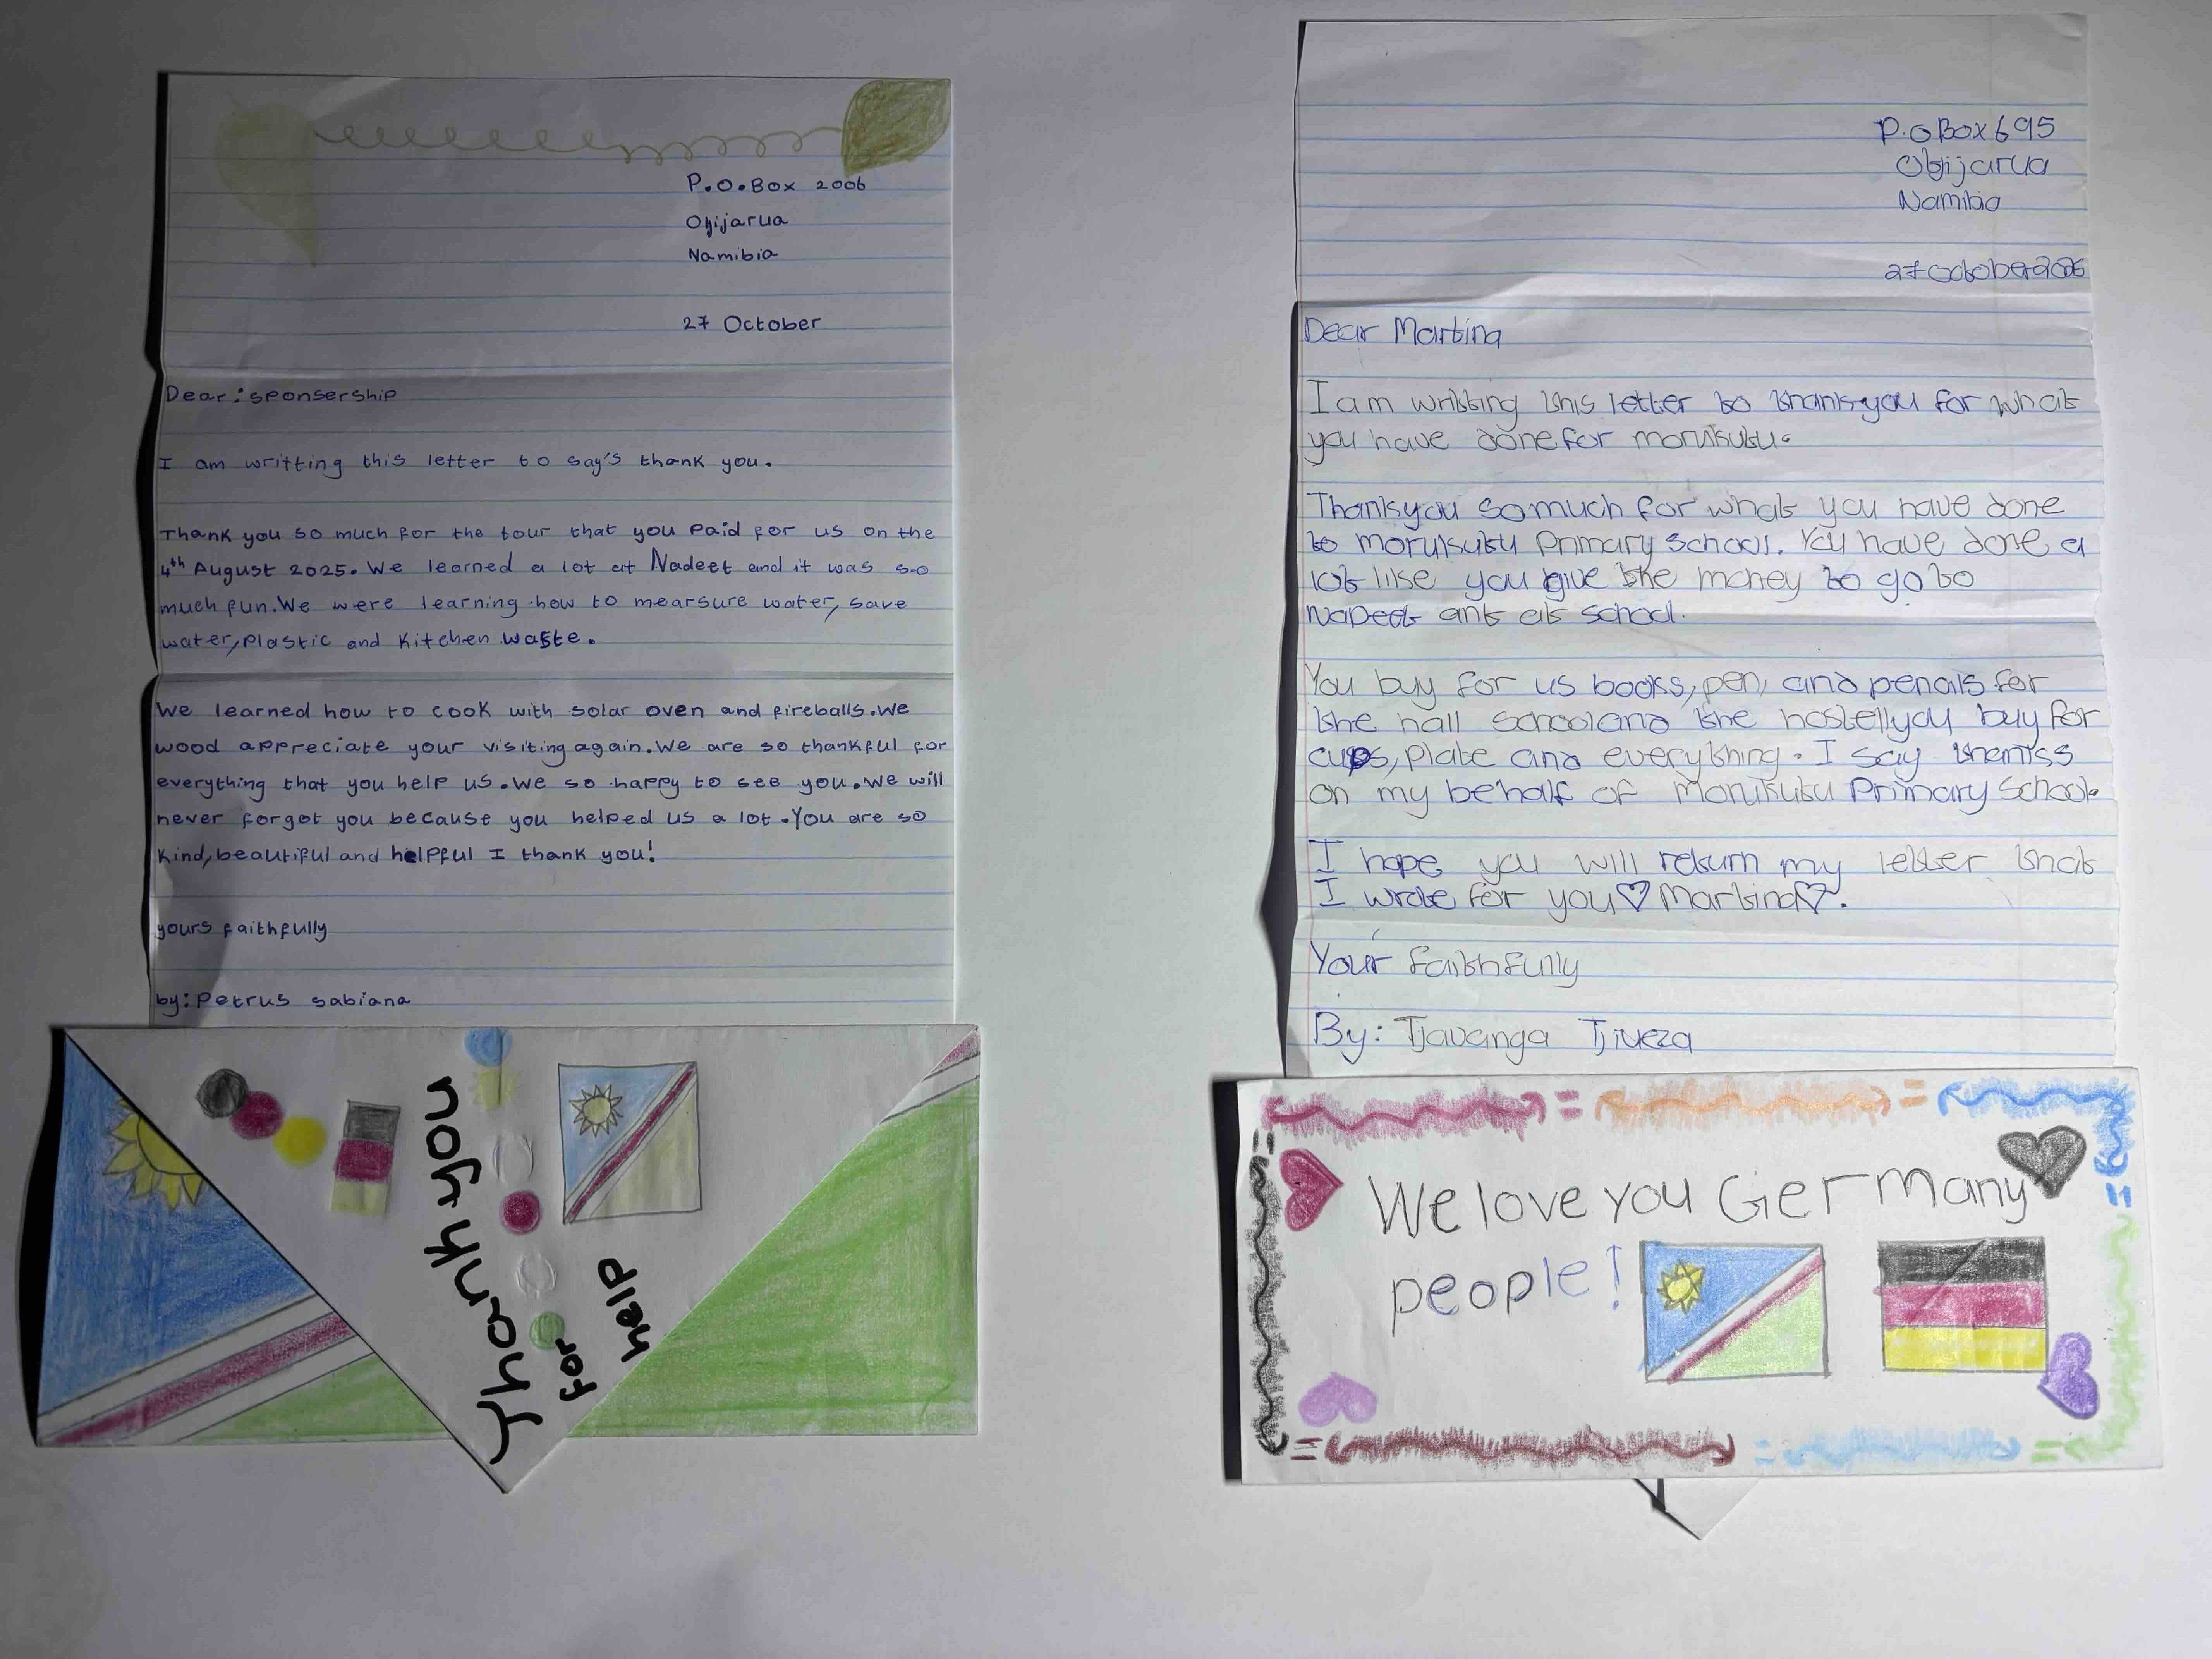 P.O.Box 2006
Okjijarua
Namibia
27 October
Dear: sponsership
I am writting this letter to say's thank you.
Thank you so much for the tour that you paid for us on the
4th August 2025. We learned a lot at Nadeet and it was so
much fun. We were learning how to mearsure water, save
water, plastic and kitchen waste.
We learned how to cook with solar oven and fireballs. We
wood appreciate your visiting again. We are so thankful for
everything that you help us. We so happy to see you. We will
never forget you because you helped us a lot. You are so
kind, beautiful and helpful I thank you!
yours faithfully
by: Petrus sabiana
Thank you
for
help
P.O Box 695
Namibia
27 October 2025
Dear Martina
I am writting this letter to thank you for what
you have done for morukutu.
Thank you so much for what you have done
to morukutu Primary School. You have done a
lot like you give the money to go to
NaDeet ant eit school.
You buy for us books, pen, and pencils for
the hall school and the hostell you buy for
cups, plate and everything. I say thanks
on my behalf of morukutu Primary School.
I hope you will return my letter that
I wrote for you ♡ Martina ♡.
Your faithfully
By: Tjavanga Tjiveza
We love you Germany
people!